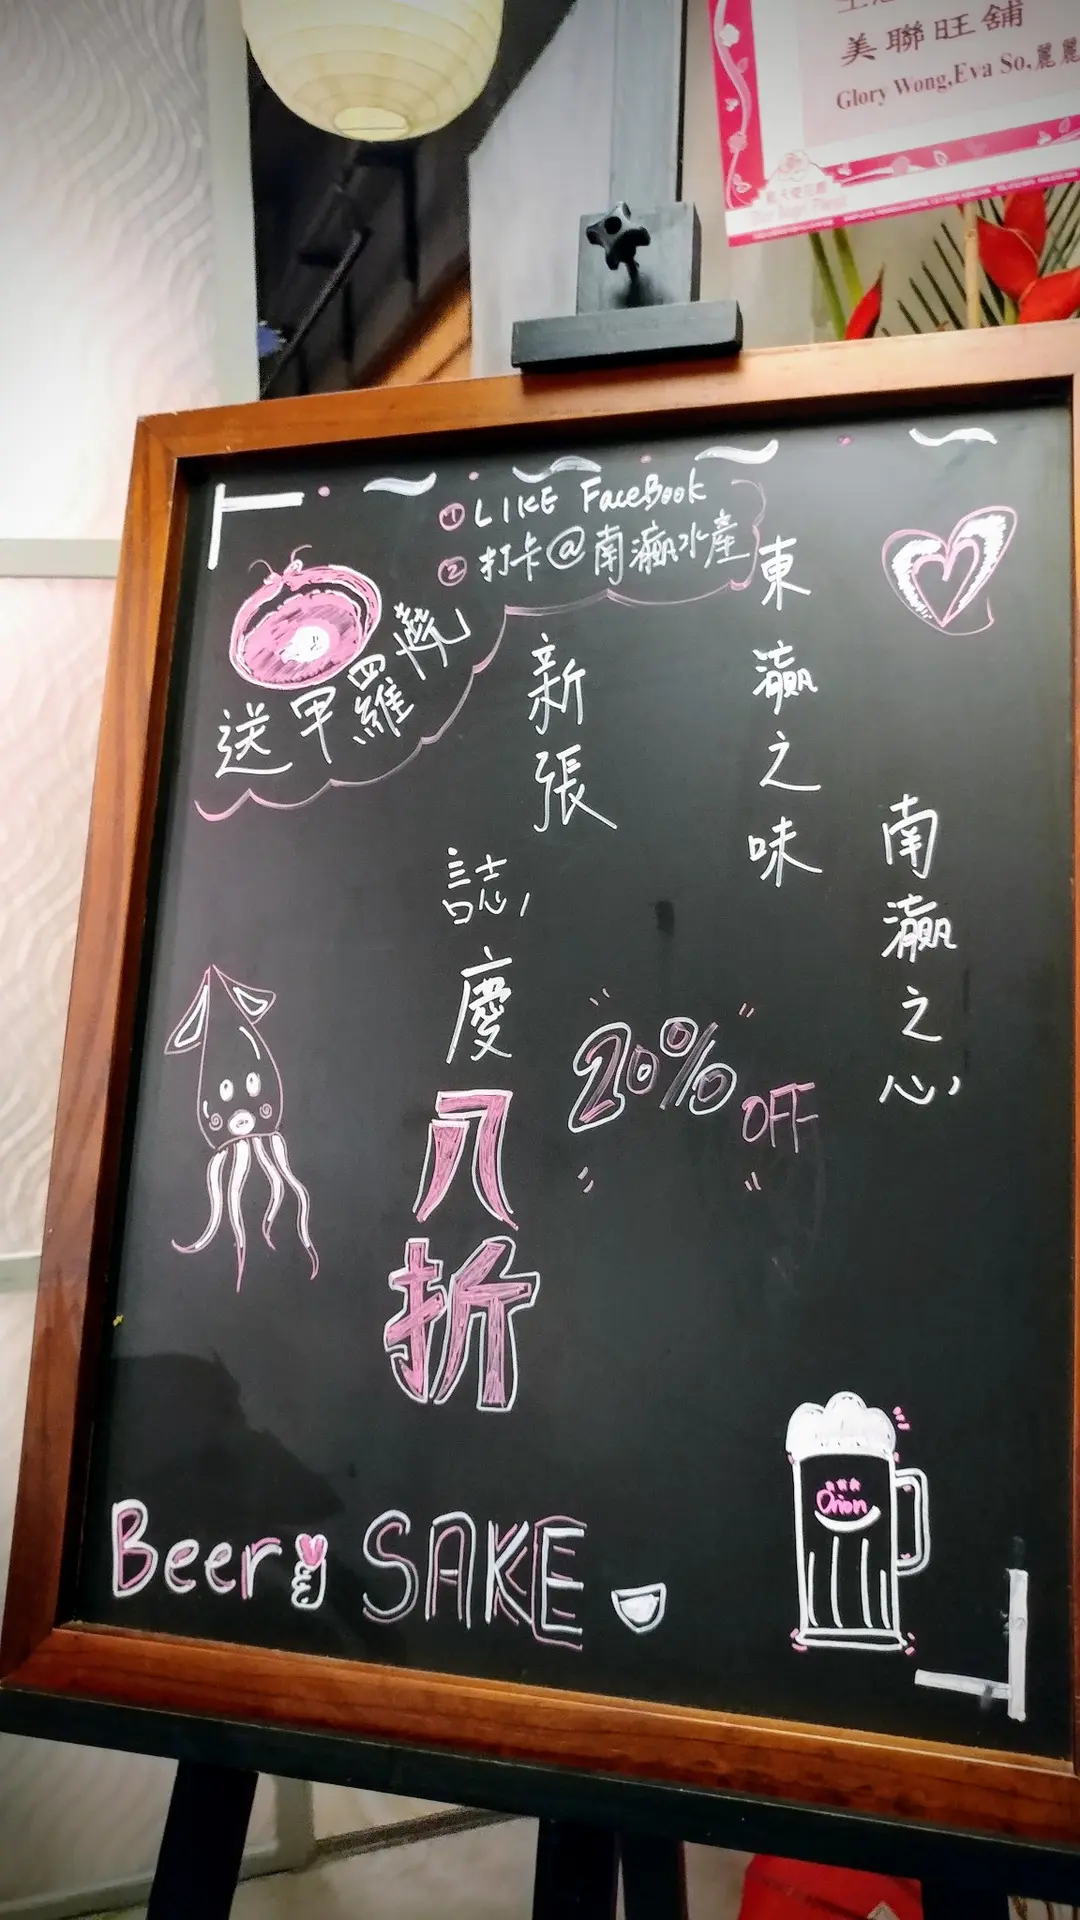 美聯旺舖
Glory Wong,Eva So,麗麗
① LIKE FaceBook
② 打卡@南瀛水產
送甲羅燒
南瀛之心
東瀛之味
新張
誌慶
八折
20% OFF
Beer SAKE
Orion